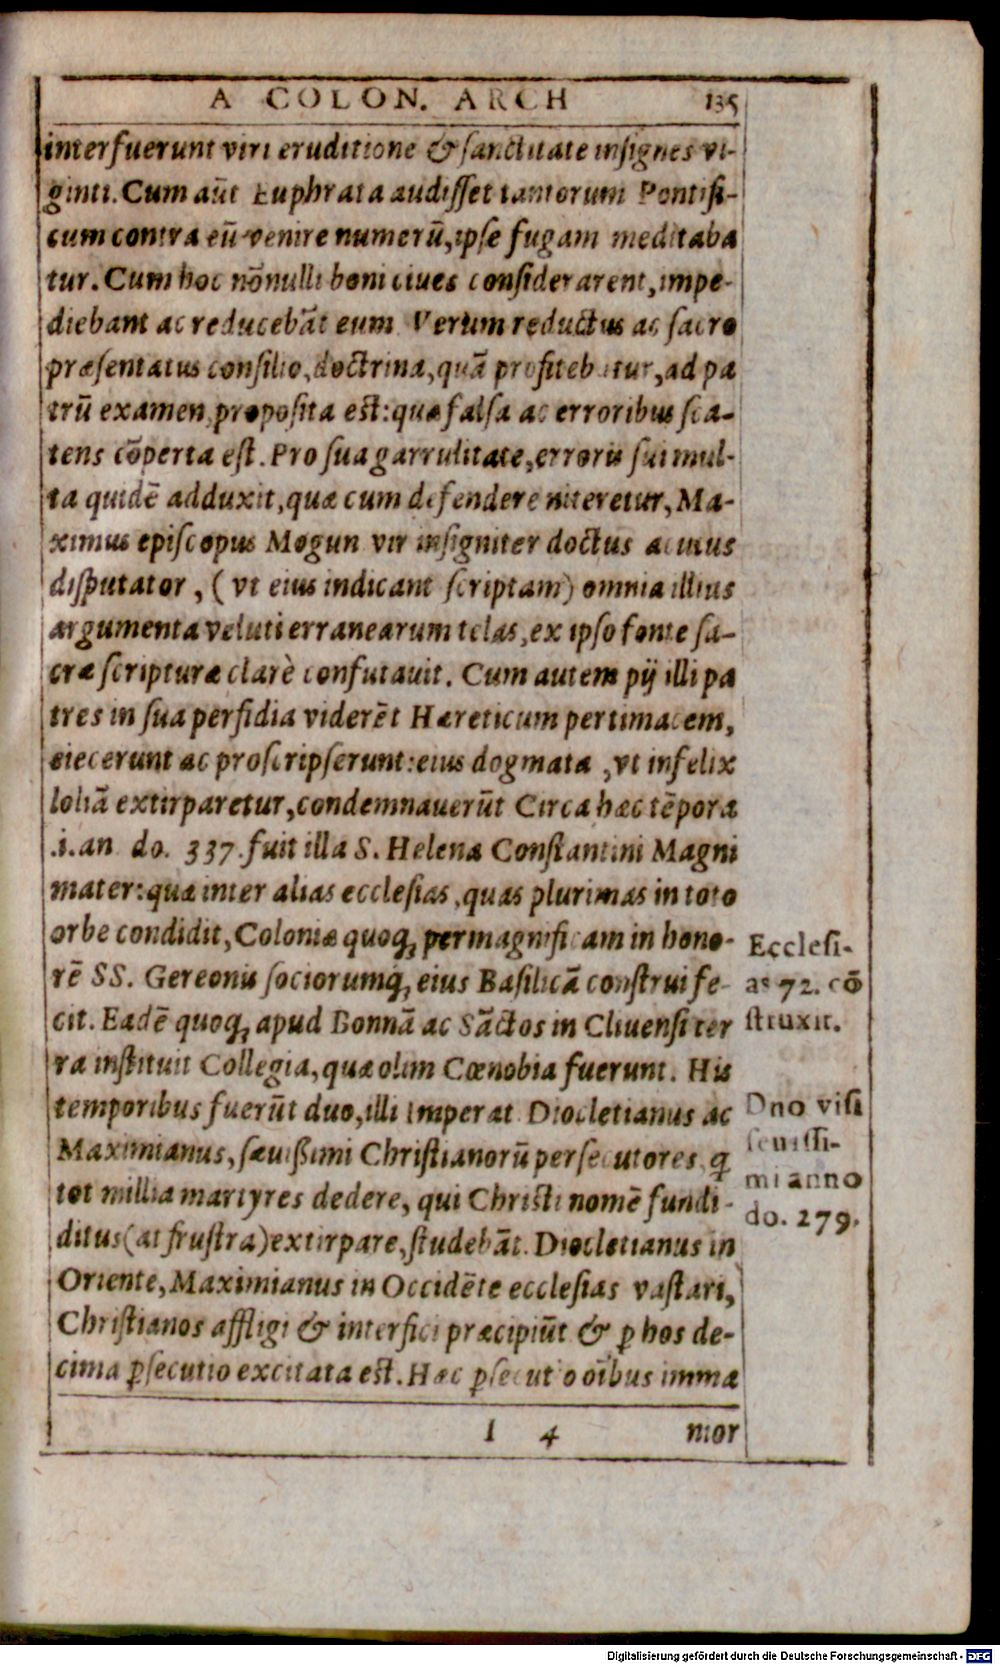 A COLON. ARCH 135
interfuerunt viri eruditione & sanctitate insignes vi-
ginti. Cum aūt Euphrata audisset tantorum Pontifi-
cum contra eū venire numerū, ipse fugam meditaba
tur. Cum hoc nōnulli boni ciues considerarent, impe-
diebant ac reducebāt eum Verum reductus ac sacro
præsentatus consilio, doctrina, quā profitebatur, ad pa
trū examen proposita est: quæ falsa ac erroribus sca-
tens cōperta est. Pro sua garrulitate, erroris sui mul-
ta quidē adduxit, quæ cum defendere niteretur, Ma-
ximus episcopus Mogun vir insigniter doctus acutus
disputator, (vt eius indicant scriptam) omnia illius
argumenta veluti erranearum telas, ex ipso fonte sa-
cræ scripturæ clarè confutauit. Cum autem pij illi pa
tres in sua perfidia viderēt Hæreticum pertinacem,
eiecerunt ac proscripserunt: eius dogmata, vt infelix
loliā extirparetur, condemnauerūt Circa hæc tēpora
.i. an do. 337. fuit illa S. Helena Constantini Magni
mater: quæ inter alias ecclesias, quas plurimas in toto
orbe condidit, Coloniæ quoq; permagnificam in hono-
rē SS. Gereonis sociorumq; eius Basilicā construi fe-
cit. Eadē quoq; apud Bonnā ac Sāctos in Cliuensi ter
ra instituit Collegia, quæ olim Cœnobia fuerunt. His
temporibus fuerūt duo, illi Imperat Diocletianus ac
Maximianus, sæuißimi Christianorū persecutores, q
tot millia martyres dedere, qui Christi nomē fundi-
ditus (at frustra) extirpare, studebāt. Diocletianus in
Oriente, Maximianus in Occidēte ecclesias vastari,
Christianos affligi & interfici præcipiūt & ꝑ hos de-
cima ꝑsecutio excitata est. Hæc ꝑsecutio oībus imma
I 4 nior
Ecclesi-
as 72. cō
struxit.
Dno visi
seuissi-
mi anno
do. 279.
Digitalisierung gefördert durch die Deutsche Forschungsgemeinschaft - DFG